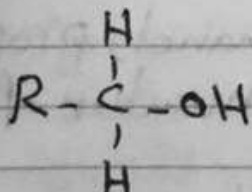 H
R - C - OH
H